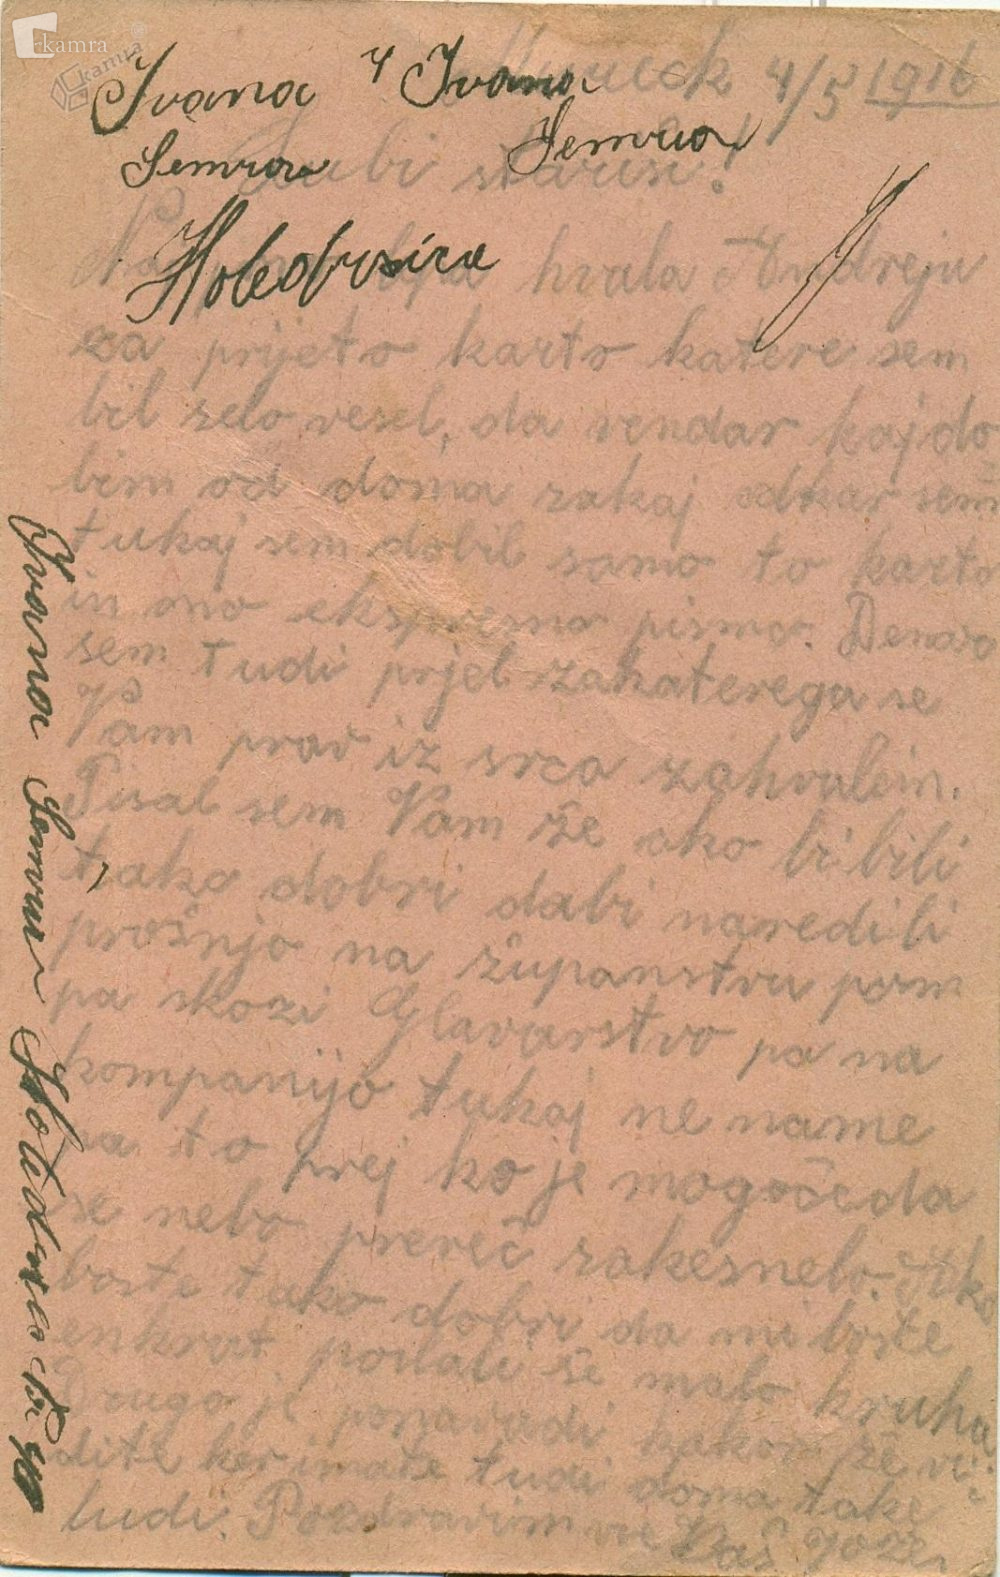 kamra
kamra
Ivana Ivana
Semrov Semrov
Hotedršica
4/5 1916
Ljubi stariši!
lepa hvala Andreju
za prjeto karto katere sem
bil zelo vesel, da vendar kaj do
bim od doma zakaj odkar sem
tukaj sem dobil samo to karto
in eno ekspresno pismo. Denar
sem tudi prjel zakaterega se
Vam prav iz srca zahvalem.
Pisal sem Vam že ako bi bili
tako dobri dabi naredili
prošnjo na županstvu
pa skozi Glavarstvo pa na
kompanijo tukaj ne name
na to prej ko je mogoče da
se nebo preveč zakesnelo. Ako
boste tako dobri da mi boste
enkrat poslali še malo kruha
Drugo je ponavadi kakor že vi-
dite ker imate tudi doma take
ludi. Pozdravim vse Vaš Jože
Ivana Semrov Hotedršica